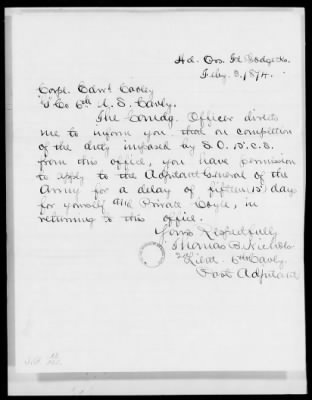 Hd. Qrs. Ft. Dodge Ks.
Feby. 3, 1874.
Corpl. Edwd Cooley
"I" Co 6th U. S. Cavly.
The Comdg. Officer directs
me to inform you, that on completion
of the duty imposed by S.O. 15. C.S.
from this office, you have permission
to apply to the Adjutant General of the
Army for a delay of fifteen 15 days
for yourself and Private Coyle, in
returning to this office.
Yours Respectfully
Thomas B. Nichols
2nd Lieut. 6th Cavly.
Post Adjutant